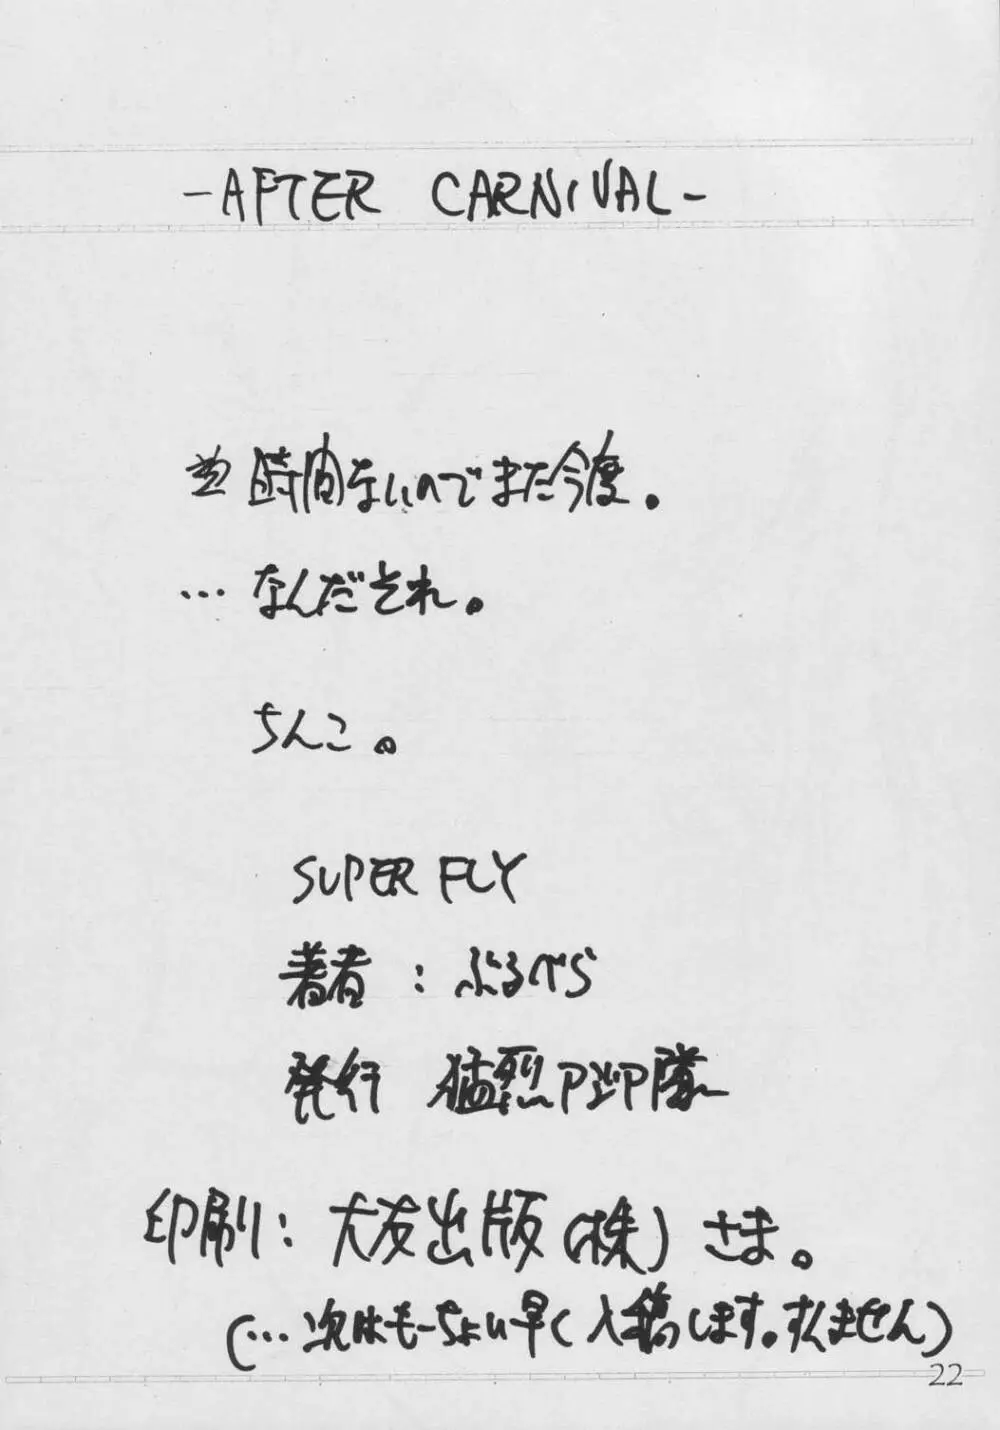 -AFTER CARNIVAL-
時間ないのでまた今度。
…なんだそれ。
ちんこ。
SUPER FLY
著者:ぶるべら
発行 猛烈P↑P隊
印刷:大友出版(株)さま。
(…次はもーちょい早く入稿します。すんません)
22